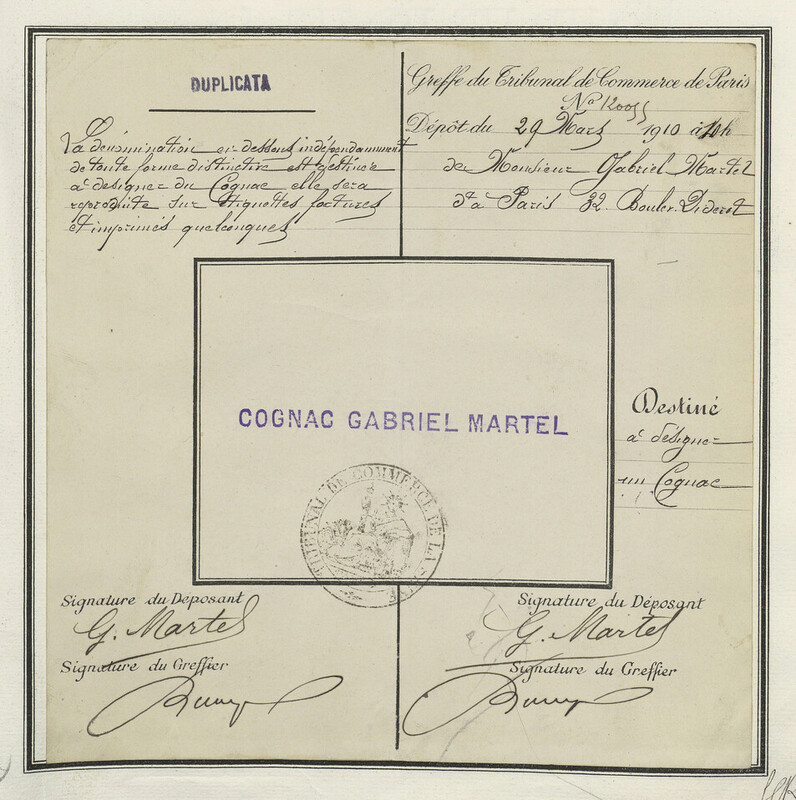 DUPLICATA
La dénomination ci-dessous indépendamment
de toute forme distinctive est destinée
à désigner du Cognac elle sera
reproduite sur étiquettes factures
et imprimés quelconques
Greffe du Tribunal de Commerce de Paris
No 120055
Dépôt du 29 Mars 1910 à
de Monsieur Gabriel Martel
à Paris 32 Boulev. Diderot
COGNAC GABRIEL MARTEL
Destiné
à désigner
un Cognac
TRIBUNAL DE COMMERCE DE LA SEINE
Signature du Déposant
G. Martel
Signature du Greffier
Signature du Déposant
G. Martel
Signature du Greffier